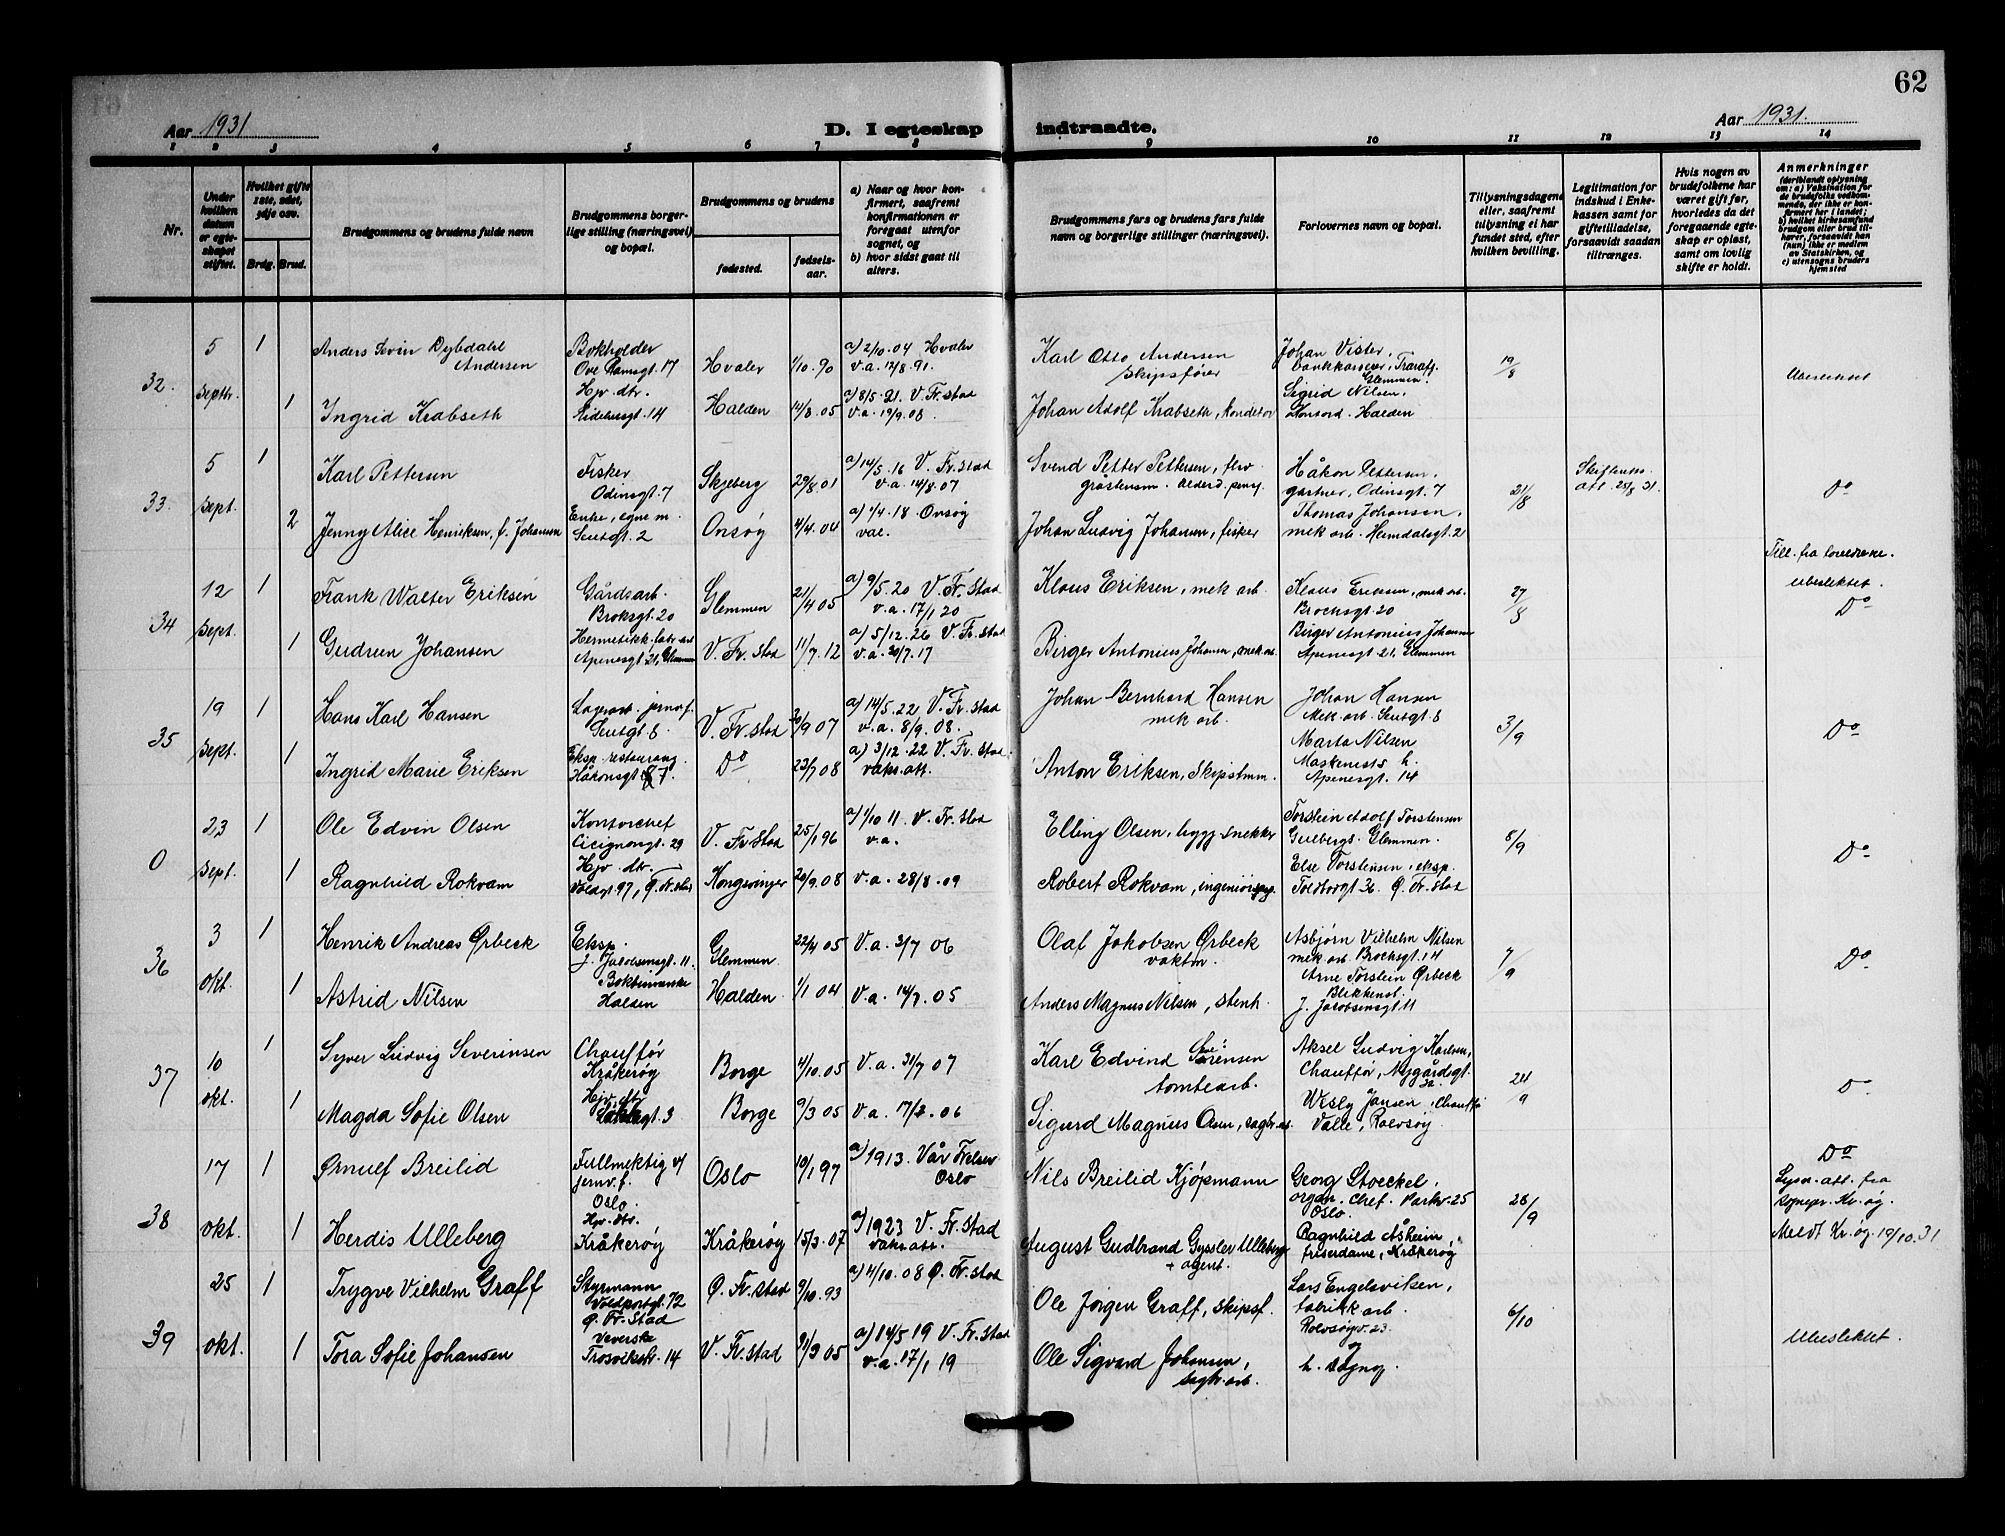 62
Aar 1931
D. I egteskap indtraadte.
Aar 1931.
1 2 3 4 5 6 7 8 9 10 11 12 13 14
Nr.
Under hvilken datum er egteskapet stiftet.
Hvilket gifte 1ste, 2det, 3dje osv.
Brdg. Brud.
Brudgommens og brudens fulde navn
Brudgommens borgerlige stilling (næringsvei) og bopæl.
Brudgommens og brudens
fødested.
fødselsaar.
a) Naar og hvor konfirmert, saafremt konfirmationen er foregaat utenfor sognet, og
b) hvor sidst gaat til alters.
Brudgommens fars og brudens fars fulde navn og borgerlige stillinger (næringsvei).
Forlovernes navn og bopæl.
Tillysningsdagene eller, saafremt tillysning ei har fundet sted, efter hvilken bevilling.
Legitimation for indskud i Enkekassen samt for giftetilladelse, forsaavidt saadan tiltrænges.
Hvis nogen av brudefolkene har været gift før, hvorledes da det foregaaende egteskap er opløst, samt om lovlig skifte er holdt.
Anmerkninger (deriblandt oplysning om: a) Vaksination for de brudefolks vedkommende, der ikke er konfirmert her i landet; b) hvilket kirkesamfund brudgom eller brud tilhører, forsaavidt han (hun) ikke er medlem av Statskirken, og c) utensogns bruders hjemsted
32. 5 Septbr. 1 Anders Severin Dybdahl Andersen
Bokholder Ove Ramsgt. 17 Hvaler 1/10.90 a) 2/10.04 Hvaler v.a. 12/8.91.
Karl Otto Andersen skipsfører
Johan Vister, bankkasserer, Traragt. Glemmen. 19/8 Ubeslektet
1 Ingrid Krabseth
Hjv. dtr. 14 Halden 14/8 05 a) 8/5.21. V. Fr. stad v.a. 19/9.06
Johan Adolf Krabseth, konditor
Sigrid Nilsen, Halden
33. 5 Sept. 1 Karl Pettersen
Fisker Odinsgt. 7 Skjeberg 29/8.01 a) 14/5.16 V. Fr. stad v.a. 14/8.07
Svend Petter Pettersen, alderd. pensj.
Håkon Pettersen, gartner, Odinsgt. 7 21/8 Skifteretts att. 25/8 31. Do
2 Jenny Alice Henriksen, f. Johansen
Enke, egne m. Seutgt. 2 Onsøy 4/4.04 a) 1/4.18 Onsøy vac.
Johan Ludvig Johansen, fisker
Thomas Johansen, mek arb. Heimdalsgt. 2
34 12 Sept. 1 Frank Walter Eriksen
Gårdsarb. Broksgt. 20 Glemmen 21/4 05 a) 9/5.20 V. Fr. Stad v.a. 17/1 20
Klaus Eriksen, mek arb.
Klaus Eriksen, mek arb. Brochsgt. 20 27/8 Till. fra foreldrene. Ubeslektet. Do
1 Gudrun Johansen
Hermetikk.fabr.arb Apenesgt. 21, Glemmen V. Fr. stad 11/7.12 a) 5/12.26 V. Fr. stad v.a. 30/7.17
Birger Antonius Johansen, mek arb.
Birger Antonius Johansen Apenesgt. 21, Glemmen
35 19 Sept. 1 Hans Karl Hansen
Lagerarb. jernv.f. Seutgt. 8 V. Fr. stad 26/9 07 a) 14/5.22 V. Fr. stad v.a. 8/9.08.
Johan Bernhard Hansen mek arb.
Johan Hansen Mek. arb. Seutgt 8 3/9 Do
1 Ingrid Marie Eriksen
Eksp. restaurang. Håkonsgt. 7. Do 23/7 08 a) 3/12.22 V. Fr. stad. vaks. att.
Anton Eriksen, skipstmm.
Marta Nilsen Maskinists h. Apenesgt. 14
0 23 Sept. 1 Ole Edvin Olsen
Kontorchef Cicignonsgt. 29 V. Fr. stad 25/1 96 a) 1/10 11. V. Fr. stad v.a.
Elling Olsen, bygg.snekker
Torstein Adolf Torstensen Gulbergs. Glemmen. 5/9 Do
1 Ragnhild Rokvam
Hjv. dtr. Voldgt 97, Ø. Fr. stad Kongsvinger 20/9.08 v.a. 28/8.09
Robert Rokvam, ingeniør
Else Torstensen, eksp. Toldbodgt 36. Ø. Fr. stad
36 3 Okt. 1 Henrik Andreas Ørbeck
Eksp. J. Jacobsensgt. 11. Glemmen 22/4 05 V.a. 3/7 06
Olaf Jakobsen Ørbeck vaktm.
Asbjørn Vilhelm Nilsen mek arb. Brochsgt. 14 7/9 Do
1 Astrid Nilsen
Bokbinderske Halden Halden 1/1 04 V.a. 14/7.05
Anders Magnus Nilsen, stenh.
Arne Torstein Ørbeck Blikkensl. J. Jacobsensgt 11
37 10 okt. 1 Syver Ludvig Severinsen
Chauffør Kråkerøy Borge 4/10.05 V.a. 31/7 07
Karl Edvind Sørensen tomtearb.
Aksel Ludvig Karlsen, Chauffør, Nygårdsgt. 32. 24/9 Do
1 Magda Sofie Olsen
Hjv. dtr. 3 Borge 9/3 05 V.a. 17/2.06
Sigurd Magnus Olsen, sagbr. arb.
Wesly Jansen, Chauffør Valle, Rolvsøy
38 17 okt. 1 Ørnulf Breilid
Fullmektig v/ jernv. f. Oslo. Oslo 10/1 97 a) 1913. Vår Frelser Oslo
Nils Breilid Kjøpmann
Georg Stoeckel, organ. chef. Parkv. 25 Oslo. 26/9 Do Lysn. att. fra sognepr. Kr. øy. Meldt Kr. øy. 19/10.31
1 Herdis Ulleberg
Hjv. dtr. Kråkerøy Kråkerøy 15/3.07 a) 1923 V. Fr. stad vaks. att.
August Gudbrand Gyssler Ulleberg + agent.
Ragnhild Åsheim, frisørdame, Kråkerøy
39 25 okt. 1 Trygve Vilhelm Graff
Styrmann Voldportgt. 72 Ø. Fr. stad Ø. Fr. stad 9/10.93 a) 4/10.08 Ø. Fr. stad
Ole Jørgen Graff, skipsf.
Lars Engelsviken, fabrikkarb. Rolvsøyv. 23. 6/10 Ubeslektet.
1 Tora Sofie Johansen
Veverske Trosvikstr. 14 V. Fr. stad 31/3 05 a) 14/5 19 V. Fr. stad v.a. 17/1 19
Ole Sigvard Johansen, sagbr. arb.
og h. Dagny.